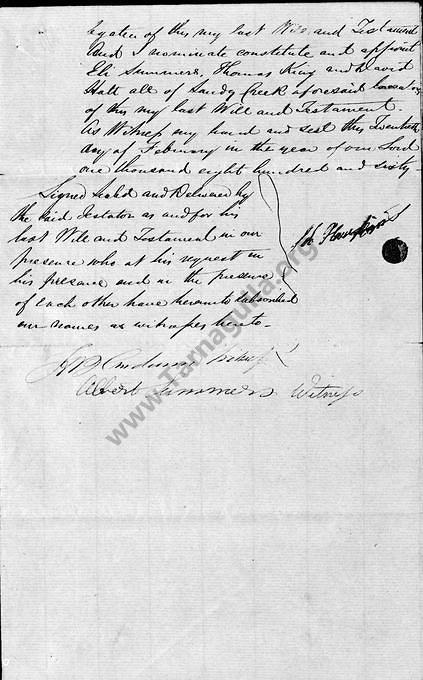 of this my last Will and Testament
And I nominate constitute and appoint
Eli Summers, Thomas King and David
Hatt all of Sandy Creek aforesaid
of this my last Will and Testament.
As Witness my hand and seal this Twentieth
day of February in the year of our Lord
one thousand eight hundred and sixty
Signed Sealed and Delivered by
the said Testator as and for his
last Will and Testament in our
presence who at his request in
his presence and in the presence
of each other have hereunto subscribed
our names as witnesses hereto
Albert Summers Witness
www.Tarnagulla.org